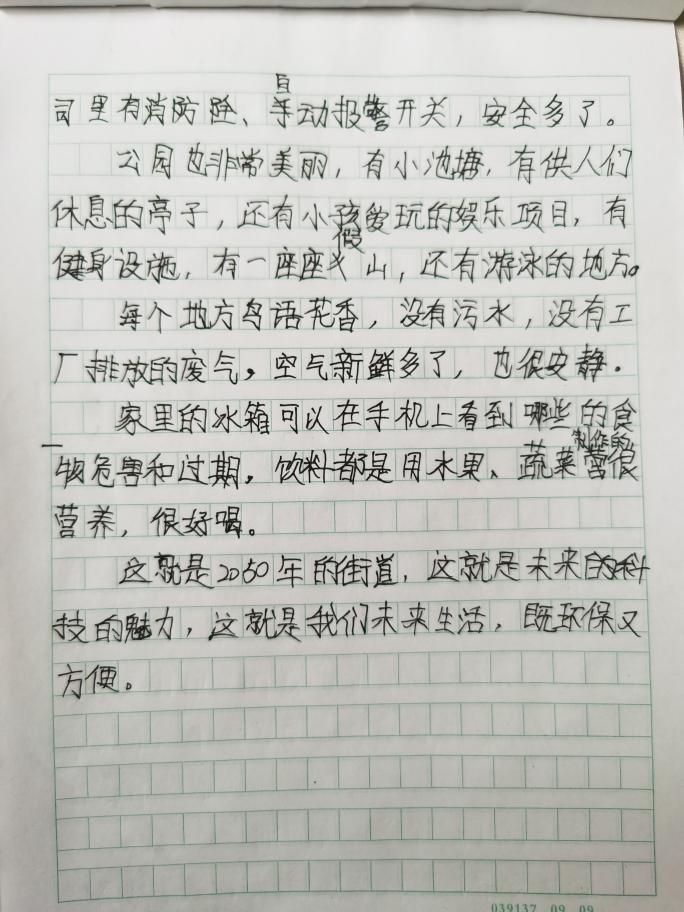 司里有消防险、自动报警开关，安全多了。
公园也非常美丽，有小池塘，有供人们
休息的亭子，还有小孩爱玩的娱乐项目，有
健身设施，有一座座假山，还有游泳的地方。
每个地方鸟语花香，没有污水，没有工
厂排放的废气，空气新鲜多了，也很安静。
家里的冰箱可以在手机上看到哪些的食
物危害和过期。饮料都是用水果、蔬菜制作的很
营养，很好喝。
这就是2050年的街道，这就是未来的科
技的魅力，这就是我们未来生活，既环保又
方便。
039137 09 09